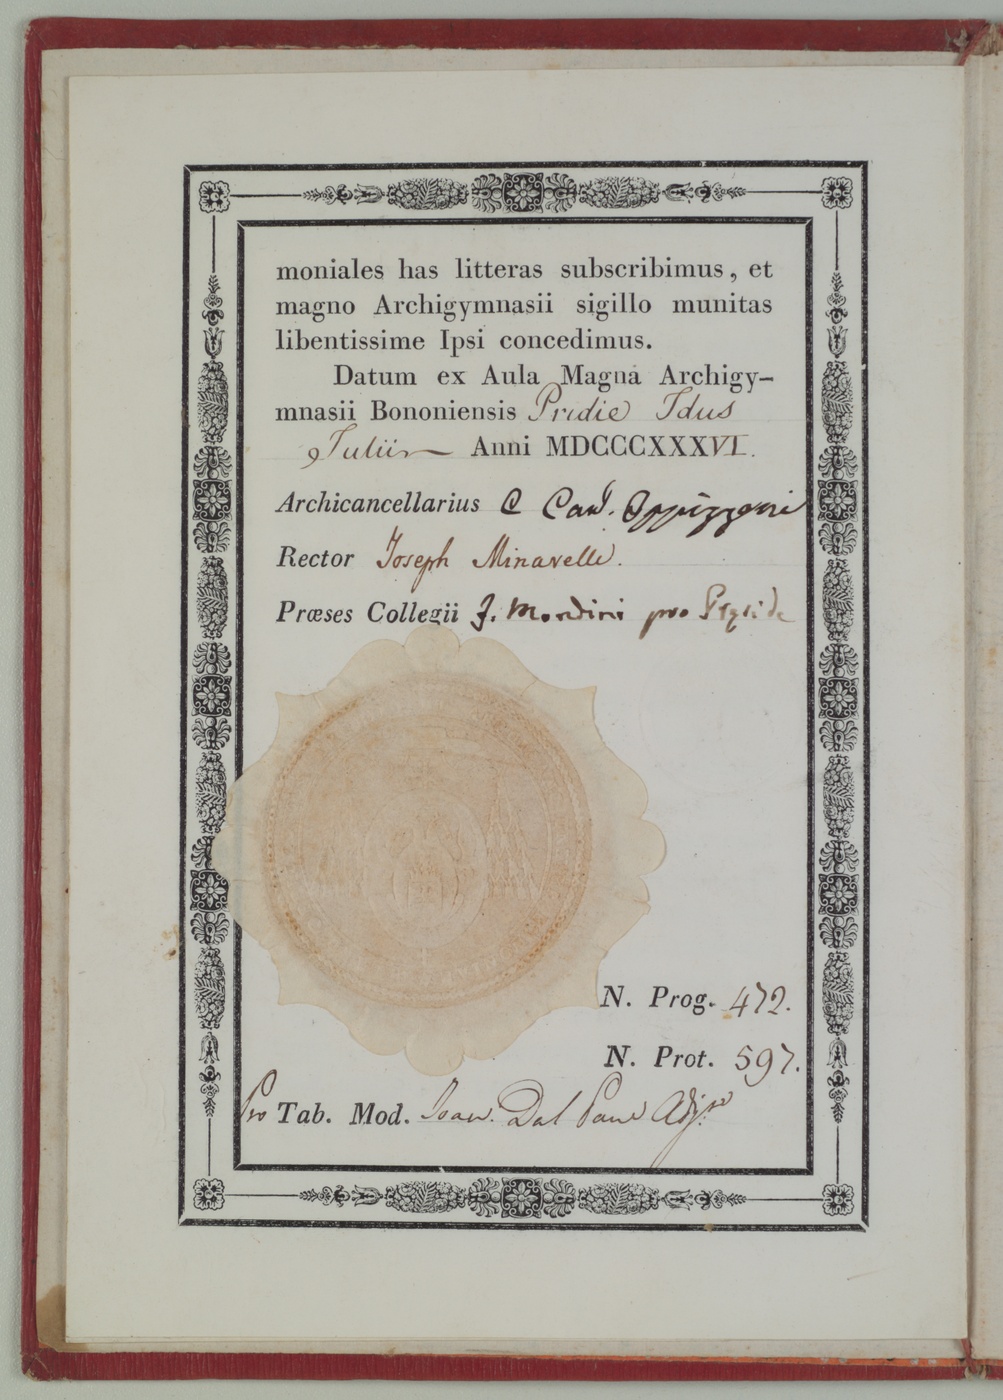 moniales has litteras subscribimus, et
magno Archigymnasii sigillo munitas
libentissime Ipsi concedimus.
Datum ex Aula Magna Archigy-
mnasii Bononiensis Pridie Idus
Julii Anni MDCCCXXXVI.
Archicancellarius C Card. Oppizzoni
Rector Joseph Minarelli.
Præses Collegii J. Mondini pro
N. Prog. 472.
N. Prot. 597.
Pro Tab. Mod. Joan. Dal Pane